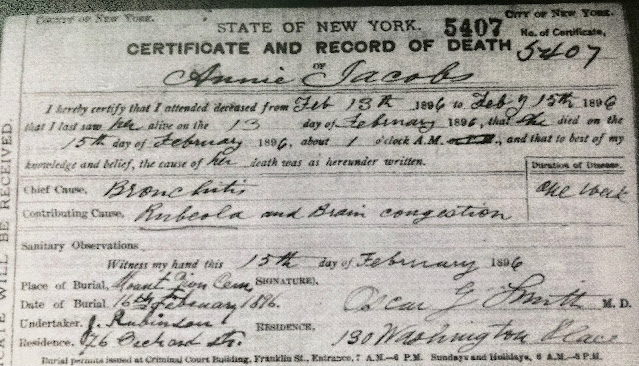 COUNTY OF NEW YORK. CITY OF NEW YORK.
STATE OF NEW YORK. 5407 No. of Certificate,
CERTIFICATE AND RECORD OF DEATH 5407
OF
Annie Jacobs
I hereby certify that I attended deceased from Feb 13th 1896 to Feb'y 15th 1896
that I last saw her alive on the 13 day of February 1896, that she died on the
15th day of February 1896, about 1 o'clock A.M. and that to best of my
knowledge and belief, the cause of her death was as hereunder written.
Duration of Disease.
Chief Cause, Bronchitis One Week
Contributing Cause, Rubeola and Brain congestion
Sanitary Observations
Witness my hand this 15th day of February 1896
Place of Burial, Mount Zion Cem SIGNATURE),
Date of Burial. 16th February 1896. Oscar G Smith M. D.
Undertaker. J. Rubinson RESIDENCE,
Residence. 76 Orchard St. 130 Washington Place
Burial permits issued at Criminal Court Building, Franklin St., Entrance, 7 A.M.–6 P.M. Sundays and Holidays, 8 A.M.–5 P.M.
CATE WILL BE RECEIVED.